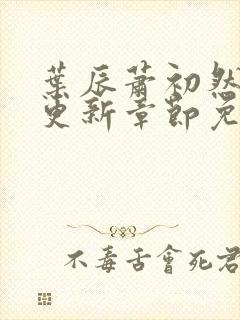 葉辰蕭初然
更新章節免
不毒舌會死君